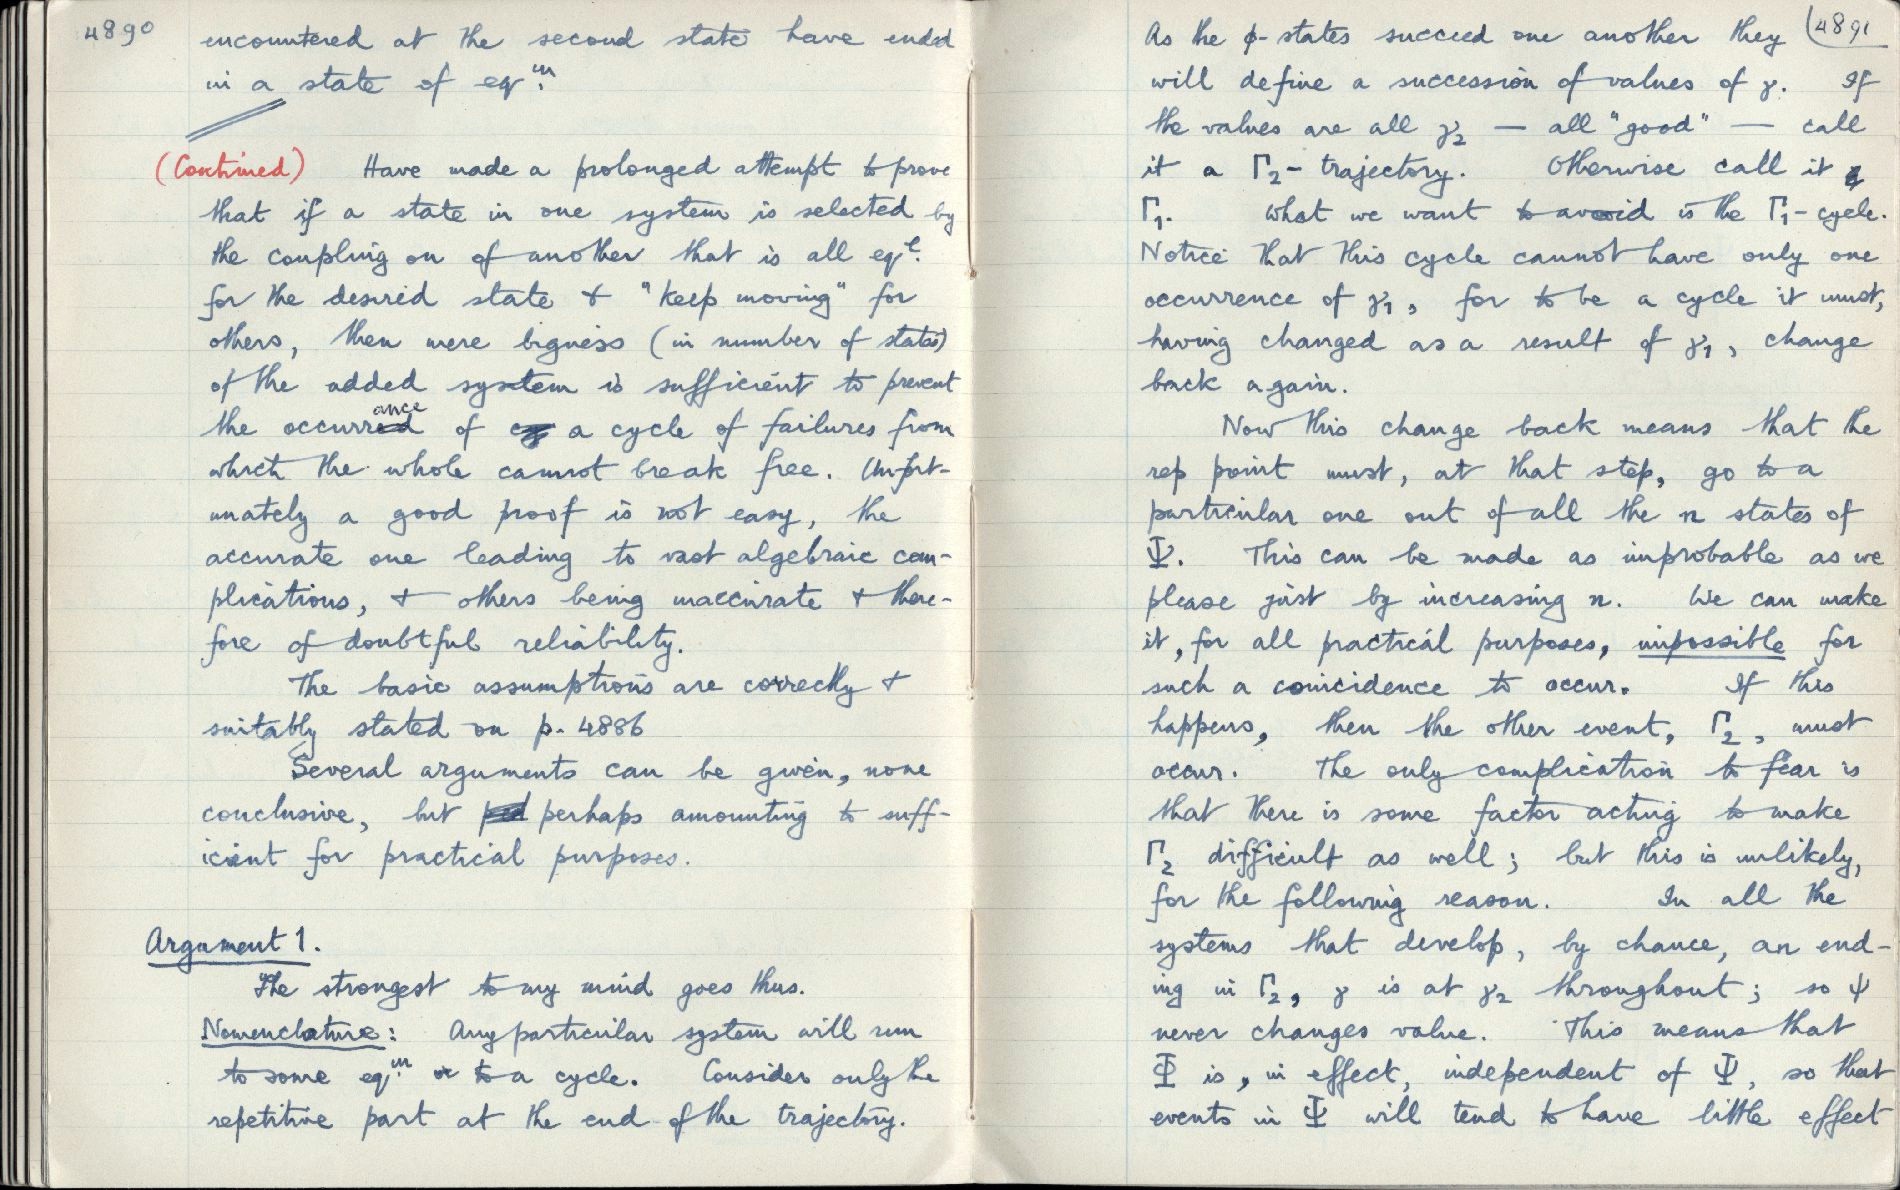 4890
encountered at the second state have ended
in a state of eqᵐ.
(Continued) Have made a prolonged attempt to prove
that if a state in one system is selected by
the coupling on of another that is all eqˡ.
for the desired state & "keep moving" for
others, then mere bigness (in number of states)
of the added system is sufficient to prevent
the occurrance of a cycle of failures from
which the whole cannot break free. Unfort-
unately a good proof is not easy, the
accurate one leading to vast algebraic com-
plications, & others being inaccurate & there-
fore of doubtful reliability.
The basic assumptions are correctly &
suitably stated on p. 4886
Several arguments can be given, none
conclusive, but perhaps amounting to suff-
icient for practical purposes.
Argument 1.
The strongest to my mind goes thus.
Nomenclature: Any particular system will run
to some eqᵐ. or to a cycle. Consider only the
repetitive part at the end of the trajectory.
4891
As the φ-states succeed one another they
will define a succession of values of γ. If
the values are all γ₂ — all "good" — call
it a Γ₂-trajectory. Otherwise call it
Γ₁. What we want to avoid is the Γ₁-cycle.
Notice that this cycle cannot have only one
occurrence of γ₁, for to be a cycle it must,
having changed as a result of γ₁, change
back again.
Now this change back means that the
rep point must, at that step, go to a
particular one out of all the n states of
Ψ. This can be made as improbable as we
please just by increasing n. We can make
it, for all practical purposes, impossible for
such a coincidence to occur. If this
happens, then the other event, Γ₂, must
occur. The only complication to fear is
that there is some factor acting to make
Γ₂ difficult as well; but this is unlikely,
for the following reason. In all the
systems that develop, by chance, an end-
ing in Γ₂, γ is at γ₂ throughout; so ψ
never changes value. This means that
Φ is, in effect, independent of Ψ, so that
events in Ψ will tend to have little effect